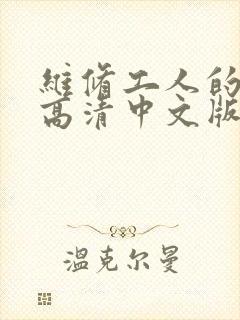 維修工人的
高清中文版
溫克尔曼